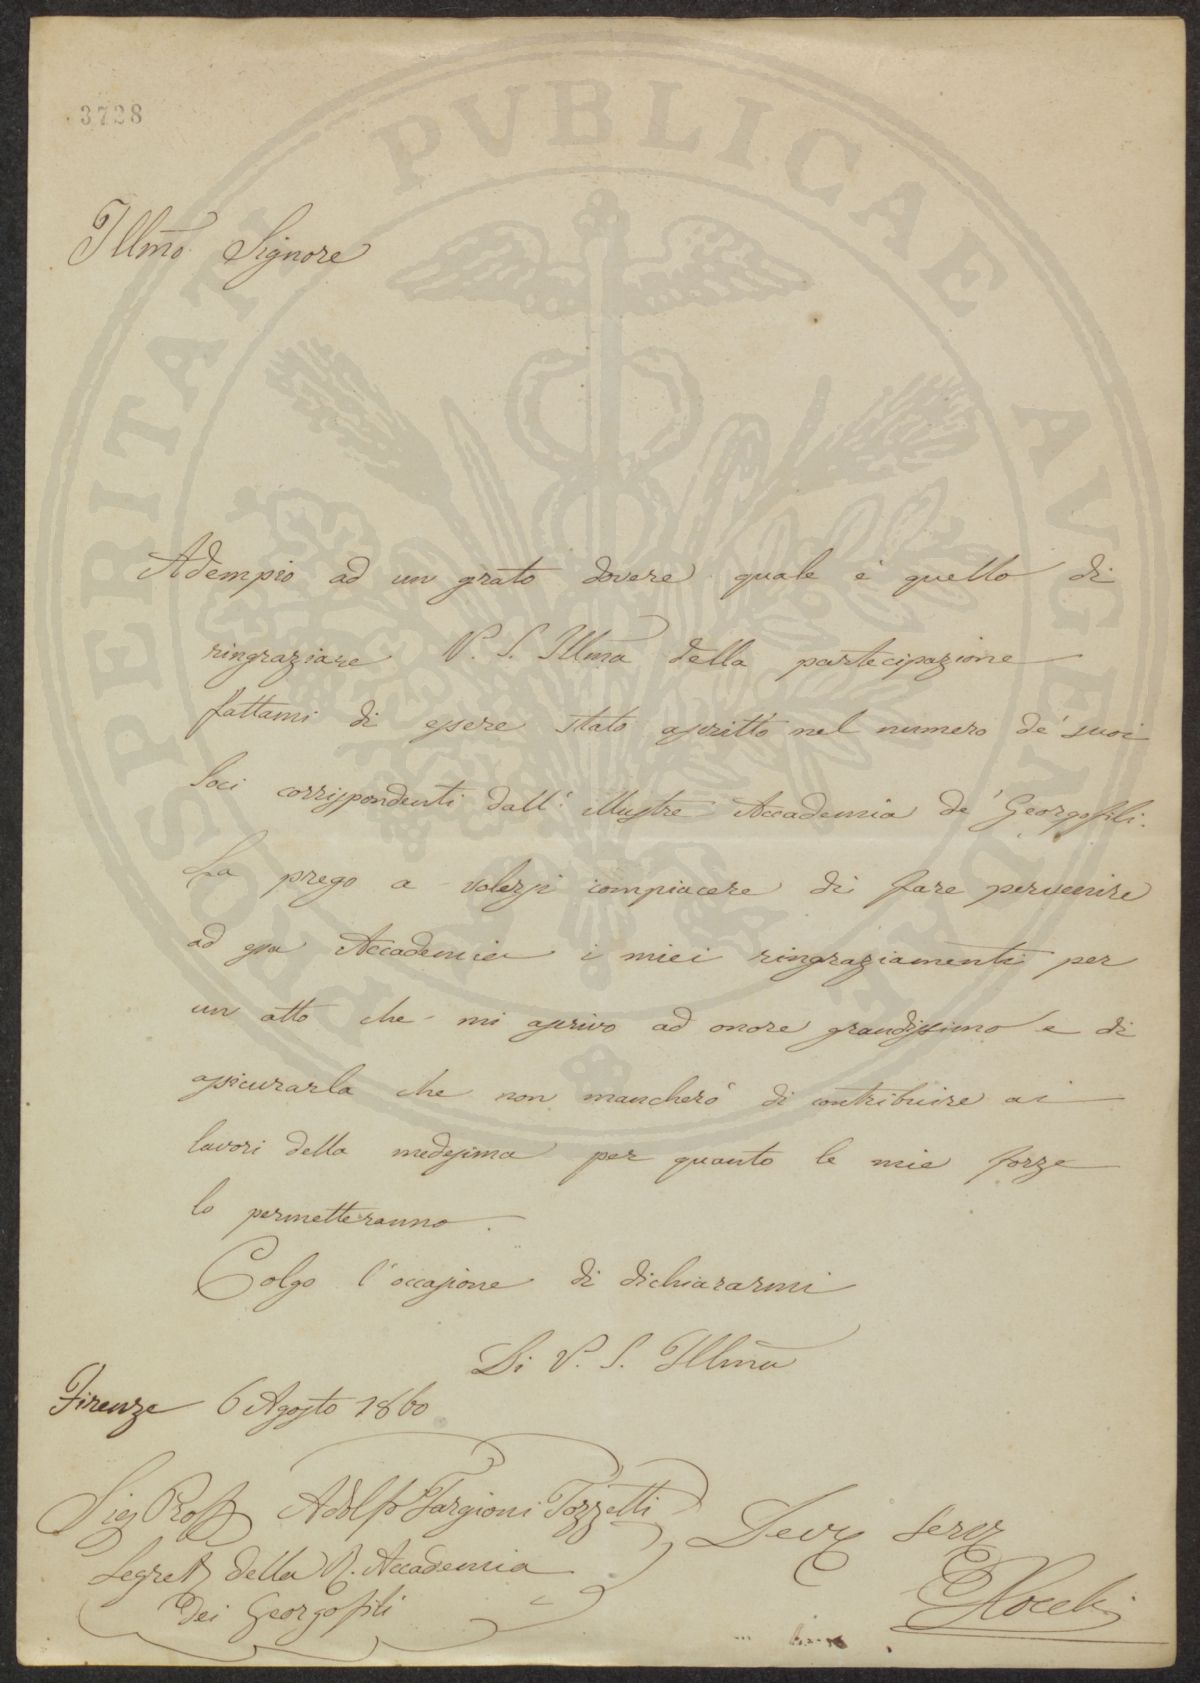 3728
PROSPERITATI PVBLICAE AVGENDAE
Illmo Signore
Adempio ad un grato dovere quale è quello di
ringraziare V. S. Illma della partecipazione
fattami di essere stato ascritto nel numero de' suoi
Soci corrispondenti dall' illustre Accademia de' Georgofili.
La prego a volersi compiacere di fare pervenire
ad essa Accademia i miei ringraziamenti per
un atto che mi ascrivo ad onore grandissimo e di
assicurarla che non mancherò di contribuire ai
lavori della medesima per quanto le mie forze
lo permetteranno.
Colgo l'occasione di dichiararmi
Di V. S. Illma
Firenze 6 Agosto 1860
Sig Prof Adolfo Targioni Tozzetti
Segret della R. Accademia
dei Georgofili
Dev serv